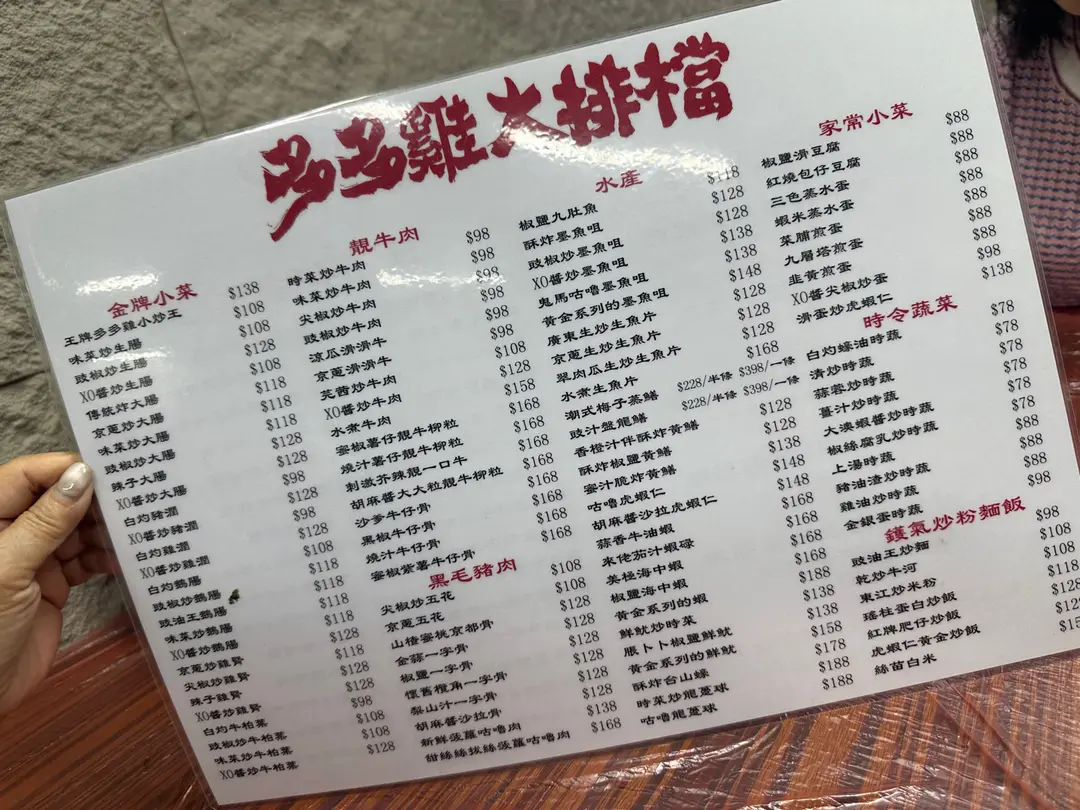 多多雞大排檔
金牌小菜
王牌多多雞小炒王
味菜炒生腸
豉椒炒生腸
XO醬炒生腸
傳統炸大腸
京蔥炒大腸
味菜炒大腸
豉椒炒大腸
辣子大腸
XO醬炒大腸
白灼豬潤
XO醬炒豬潤
白灼雞潤
XO醬炒雞潤
白灼鵝腸
豉椒炒鵝腸
豉油王鵝腸
味菜炒鵝腸
XO醬炒鵝腸
京蔥炒雞腎
尖椒炒雞腎
辣子雞腎
XO醬炒雞腎
白灼牛柏葉
豉椒炒牛柏葉
味菜炒牛柏葉
XO醬炒牛柏葉
$138
$108
$108
$128
$108
$118
$118
$118
$128
$128
$98
$128
$98
$128
$108
$118
$118
$118
$128
$118
$128
$128
$98
$108
$108
$128
靚牛肉
時菜炒牛肉
味菜炒牛肉
尖椒炒牛肉
豉椒炒牛肉
涼瓜滑滑牛
京蔥滑滑牛
芫茜炒牛肉
XO醬炒牛肉
水煮牛肉
蜜椒薯仔靚牛柳粒
燒汁薯仔靚牛柳粒
刺激芥辣靚一口牛
胡麻醬大大粒靚牛柳粒
沙爹牛仔骨
黑椒牛仔骨
燒汁牛仔骨
蜜椒紫薯牛仔骨
$98
$98
$98
$98
$98
$98
$108
$128
$158
$168
$168
$168
$168
$168
$168
$168
黑毛豬肉
尖椒炒五花
京蔥五花
山楂蜜桃京都骨
金蒜一字骨
椒鹽一字骨
懷舊欖角一字骨
梨山汁一字骨
胡麻醬沙拉骨
新鮮菠蘿咕嚕肉
甜絲絲拔絲菠蘿咕嚕肉
$108
$108
$128
$128
$128
$128
$128
$128
$138
$168
水產
椒鹽九肚魚
酥炸墨魚咀
豉椒炒墨魚咀
XO醬炒墨魚咀
鬼馬咕嚕墨魚咀
黃金系列的墨魚咀
廣東生炒生魚片
京蔥生炒生魚片
翠肉瓜生炒生魚片
水煮生魚片
潮式梅子蒸鱔 $228/半條 $398/一條
豉汁盤龍鱔 $228/半條 $398/一條
香橙汁伴酥炸黃鱔
酥炸椒鹽黃鱔
蜜汁脆炸黃鱔
咕嚕虎蝦仁
胡麻醬沙拉虎蝦仁
蒜香牛油蝦
來佬茄汁蝦碌
美極海中蝦
椒鹽海中蝦
黃金系列的蝦
鮮魷炒時菜
脹卜卜椒鹽鮮魷
黃金系列的鮮魷
酥炸台山蠔
時菜炒龍躉球
咕嚕龍躉球
$118
$128
$128
$138
$138
$148
$128
$128
$128
$168
$128
$128
$138
$148
$168
$168
$168
$168
$188
$138
$138
$158
$178
$188
$188
家常小菜
椒鹽滑豆腐 $88
紅燒包仔豆腐 $88
三色蒸水蛋 $88
蝦米蒸水蛋 $88
菜脯煎蛋 $88
九層塔煎蛋 $88
韭黃煎蛋 $88
XO醬尖椒炒蛋 $98
滑蛋炒虎蝦仁 $138
時令蔬菜
白灼蠔油時蔬
清炒時蔬
蒜蓉炒時蔬
薑汁炒時蔬
大澳蝦醬炒時蔬
椒絲腐乳炒時蔬
上湯時蔬
豬油渣炒時蔬
雞油炒時蔬
金銀蛋時蔬
$78
$78
$78
$78
$78
$78
$88
$88
$88
$98
鑊氣炒粉麵飯
豉油王炒麵 $98
乾炒牛河 $108
東江炒米粉 $108
瑤柱蛋白炒飯 $118
紅牌肥仔炒飯
虎蝦仁黃金炒飯
絲苗白米